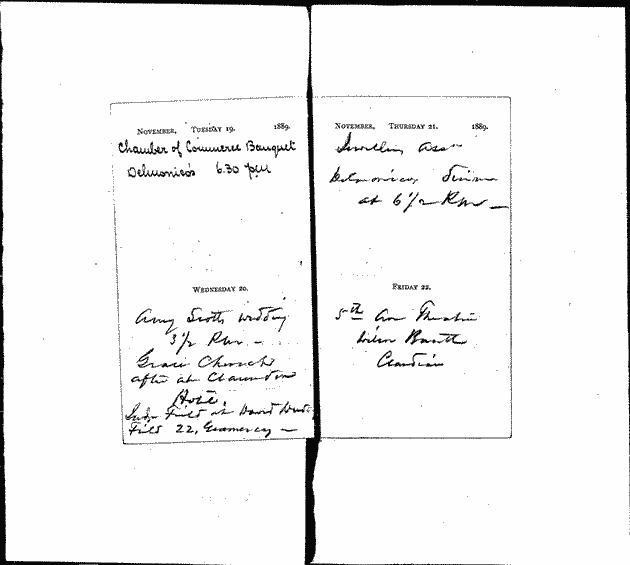 NOVEMBER, TUESDAY 19. 1889.
Chamber of Commerce Banquet
Delmonico's 6.30 pm
WEDNESDAY 20.
Amy Scotts wedding
3 1/2 P.M. —
Grace Church
after at Clarendon
Hotel.
Judge Field at David Dudley
Field 22, Gramercy —
NOVEMBER, THURSDAY 21. 1889.
Assn
Delmonicos, Dinner
at 6 1/2 P.M. —
FRIDAY 22.
5th Ave Theatre
Barrett